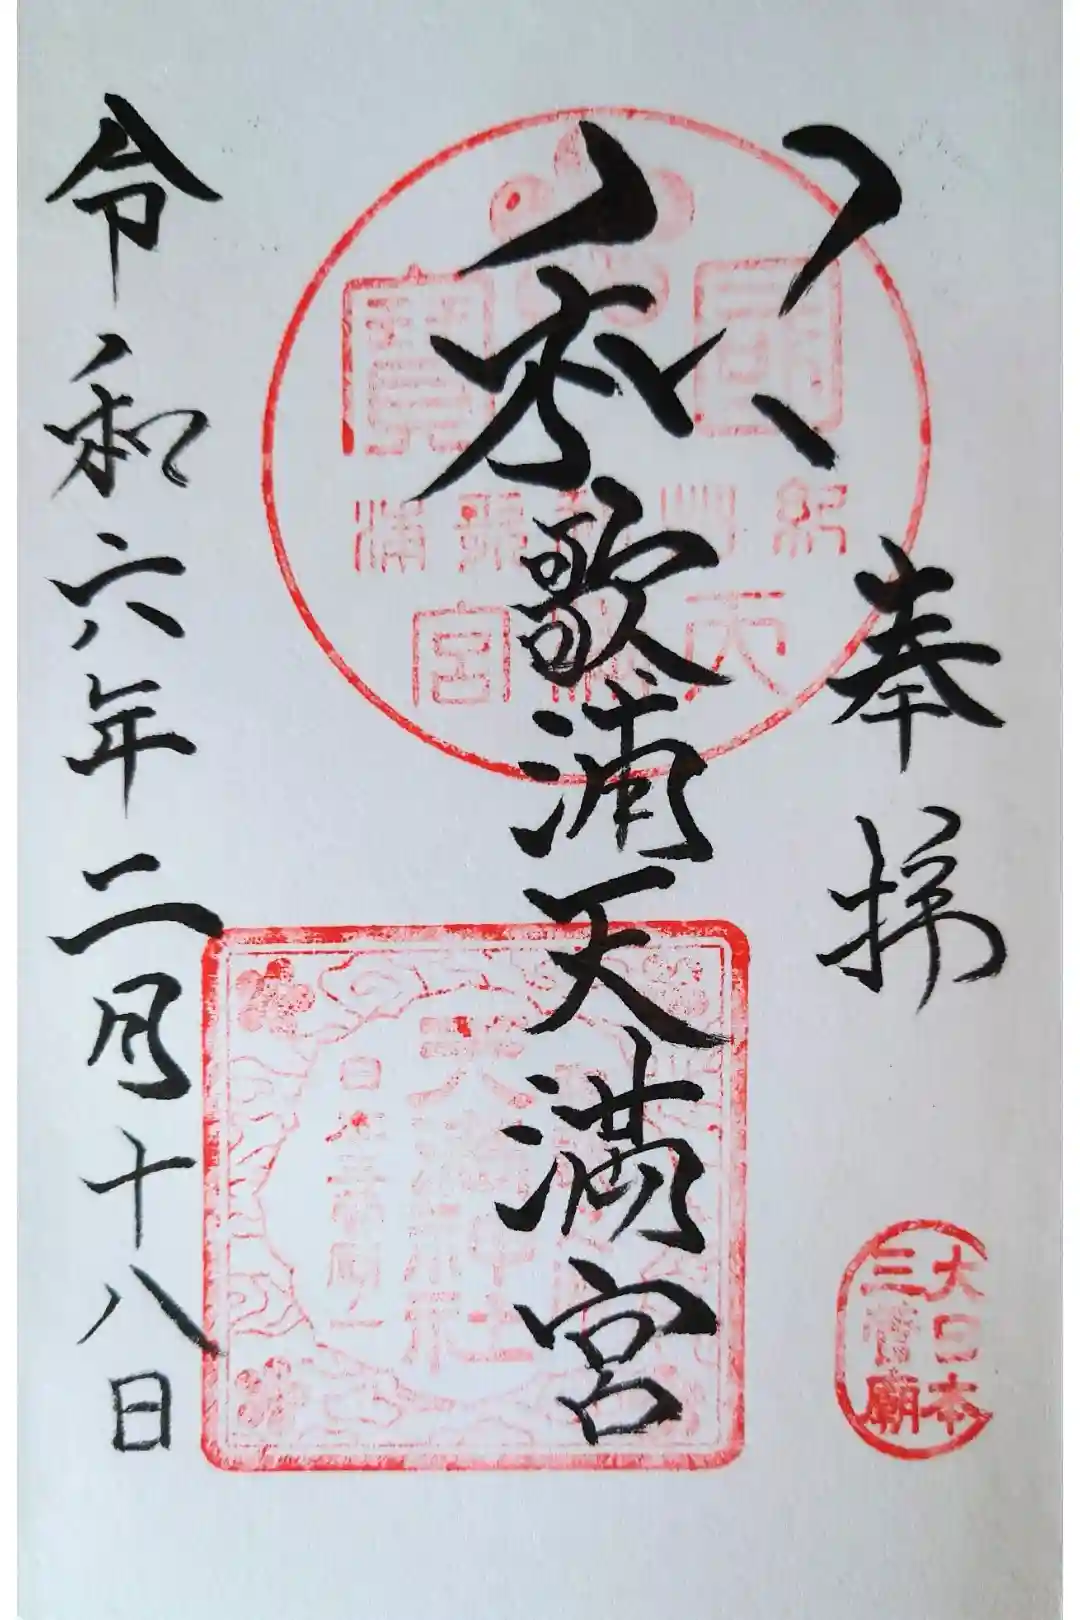 奉拝
和歌浦天満宮
令和六年二月十八日
紀州和歌浦
天満宮
天満神社
大日本
三菅廟